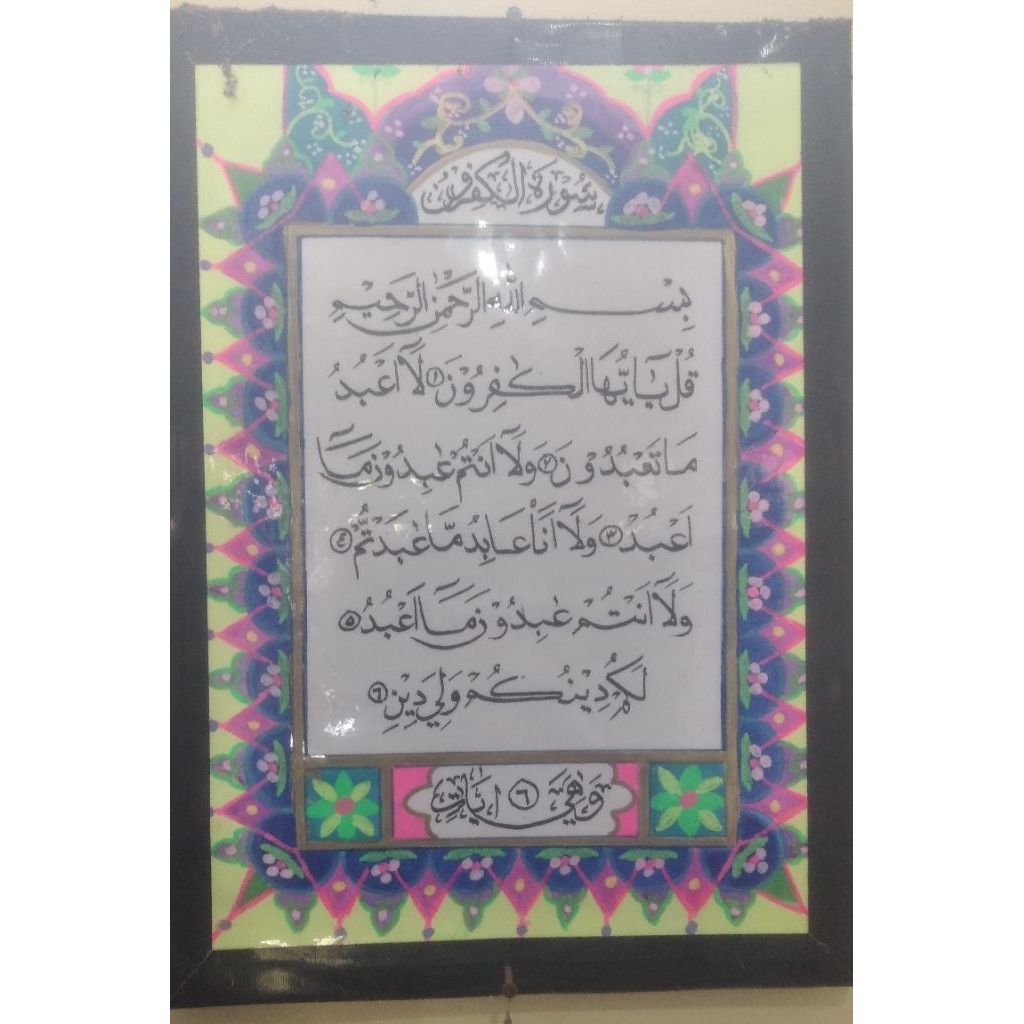 سُوْرَةُ الْكٰفِرُوْنَ
بِسْمِ اللّٰهِ الرَّحْمٰنِ الرَّحِيْمِ
قُلْ يَا يُّهَا الْكٰفِرُوْنَ ١ لَآ اَعْبُدُ
مَا تَعْبُدُوْنَ ٢ وَلَآ اَنْتُمْ عٰبِدُوْنَ مَآ
اَعْبُدُ ٣ وَلَآ اَنَا۠ عَابِدٌ مَّا عَبَدْتُّمْ ٤
وَلَآ اَنْتُمْ عٰبِدُوْنَ مَآ اَعْبُدُ ٥
لَكُمْ دِيْنُكُمْ وَلِيَ دِيْنِ ٦
وَهِيَ ٦ اٰيَاتٍ